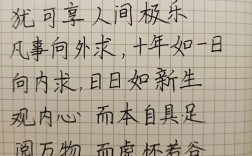 犹可享人间极乐
凡事向外求,十年如一日
向内求,日日如新生
观内心 而本自具足
阅万物 而虚怀若谷